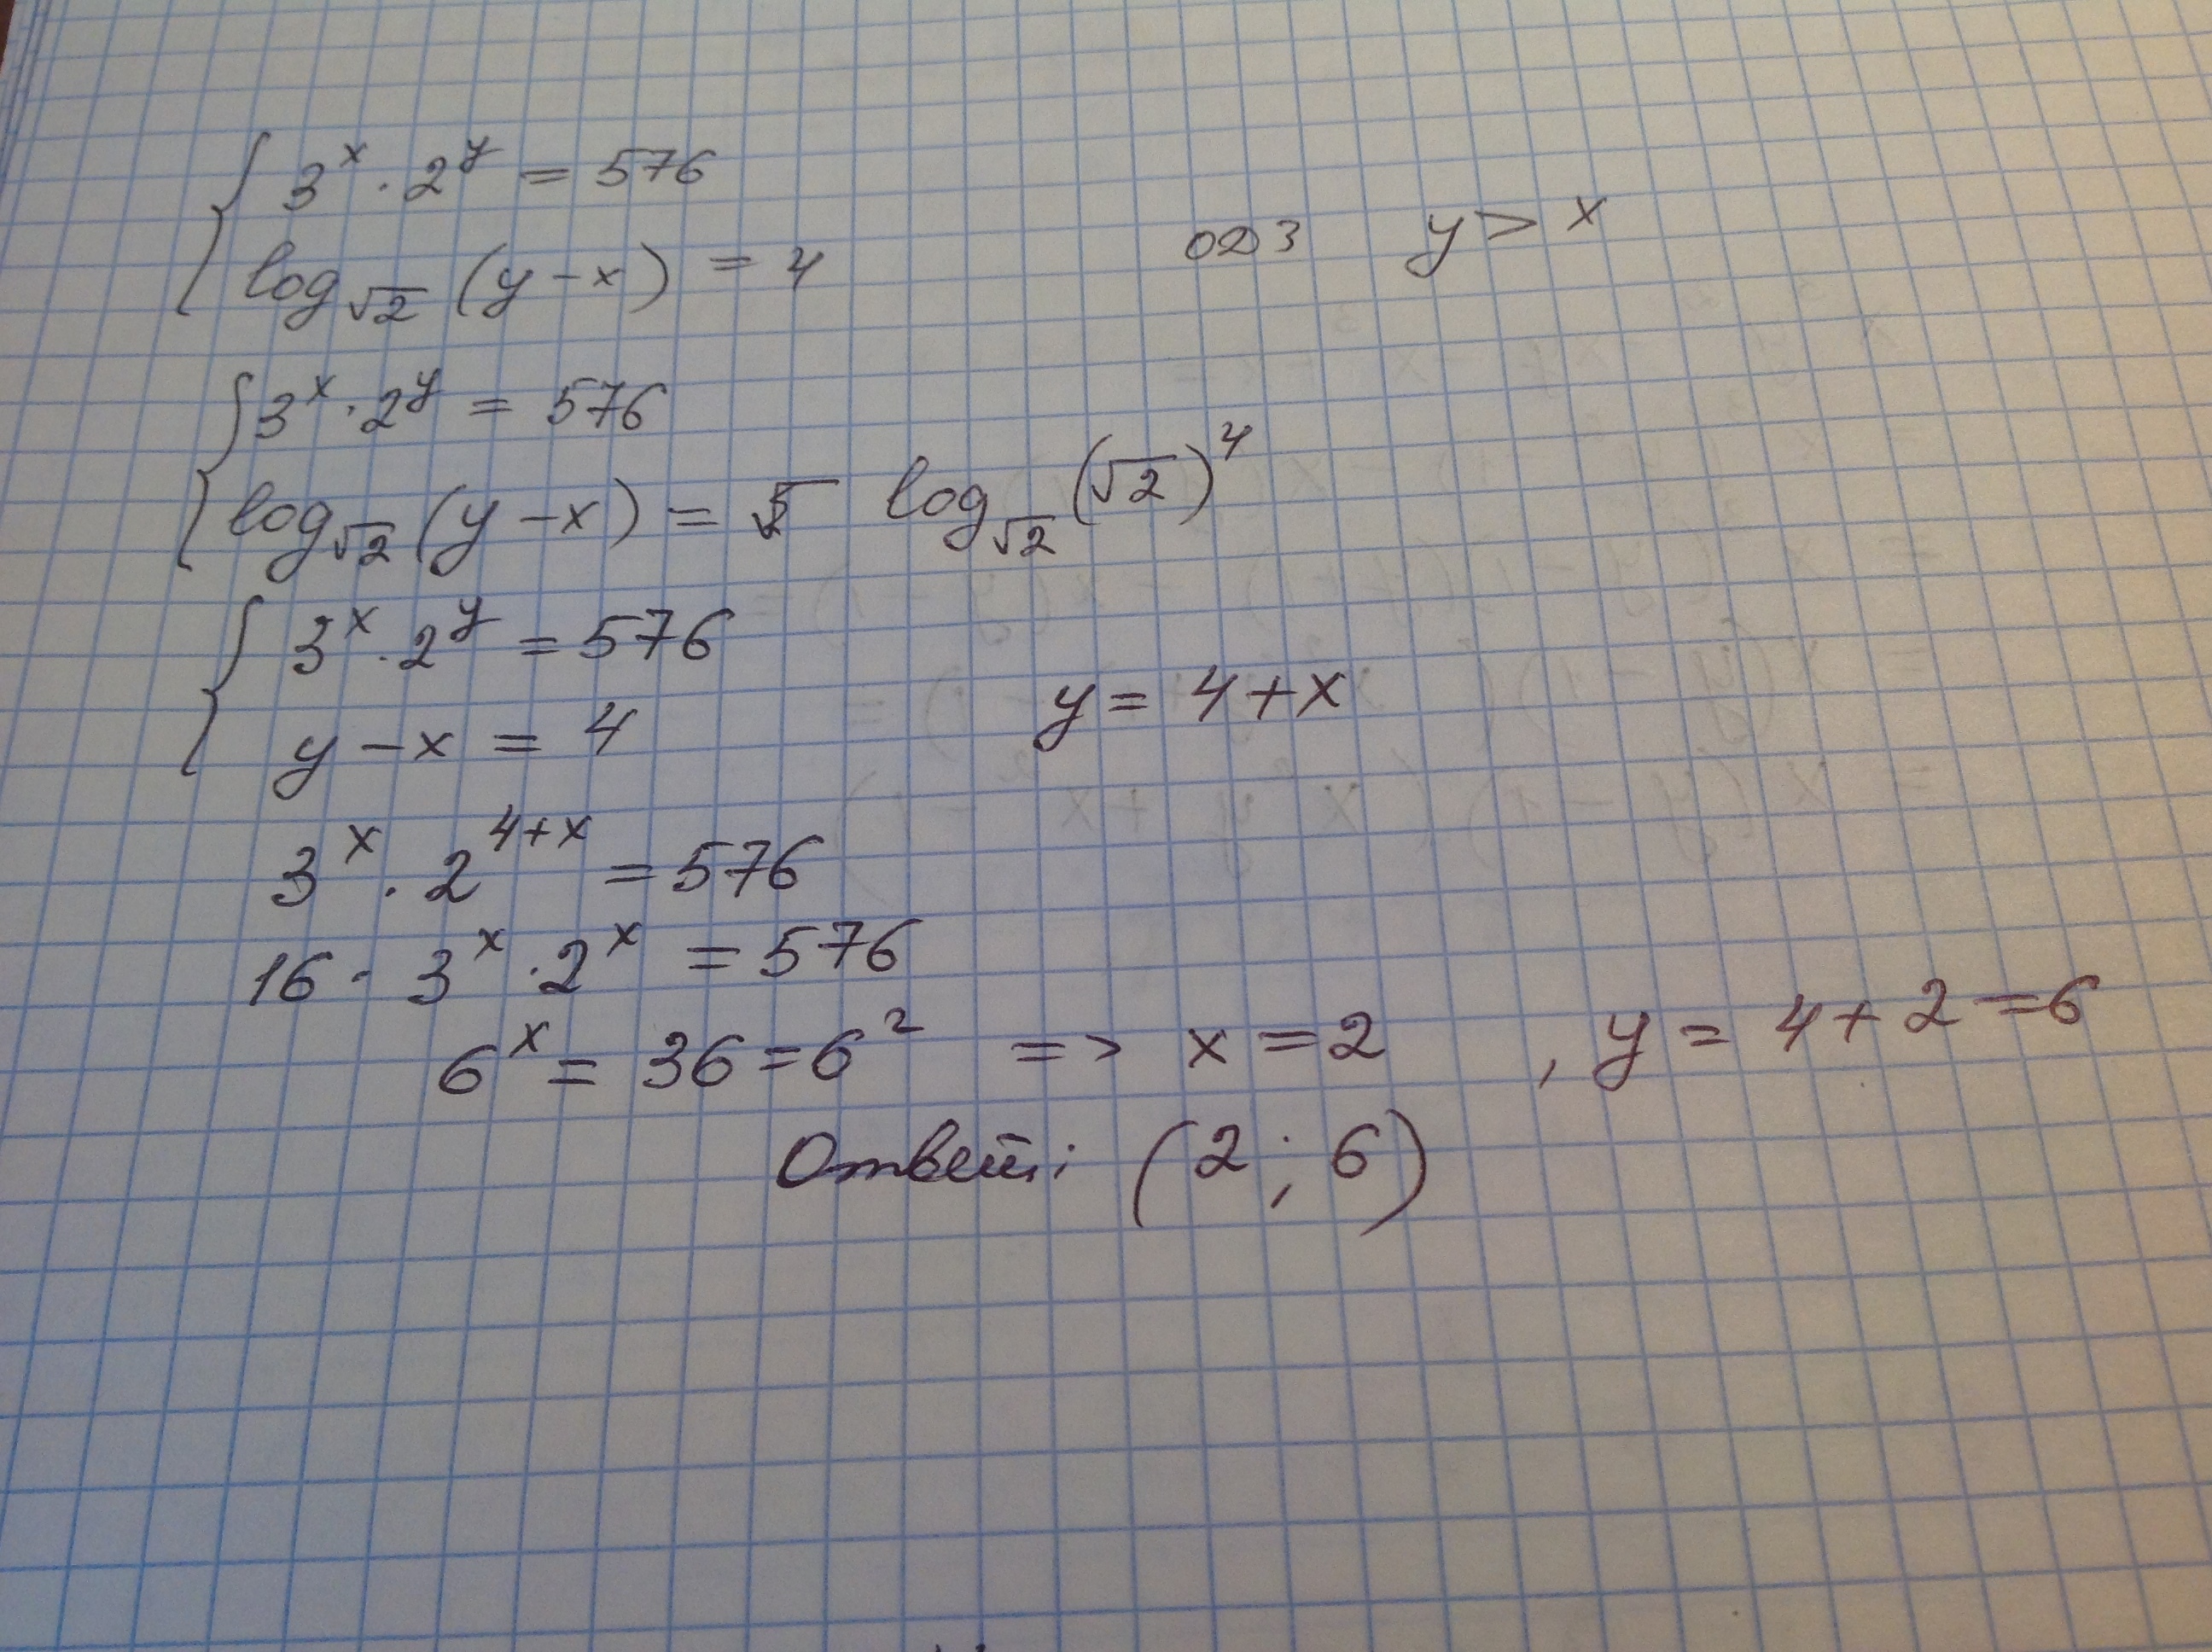 { 3^x · 2^y = 576
log_√2 (y − x) = 4
ОДЗ y > x
{ 3^x · 2^y = 576
log_√2 (y − x) = log_√2 (√2)^4
{ 3^x · 2^y = 576
y − x = 4
y = 4 + x
3^x · 2^(4+x) = 576
16 · 3^x · 2^x = 576
6^x = 36 = 6^2 => x = 2 , y = 4 + 2 = 6
Ответ: (2 ; 6)